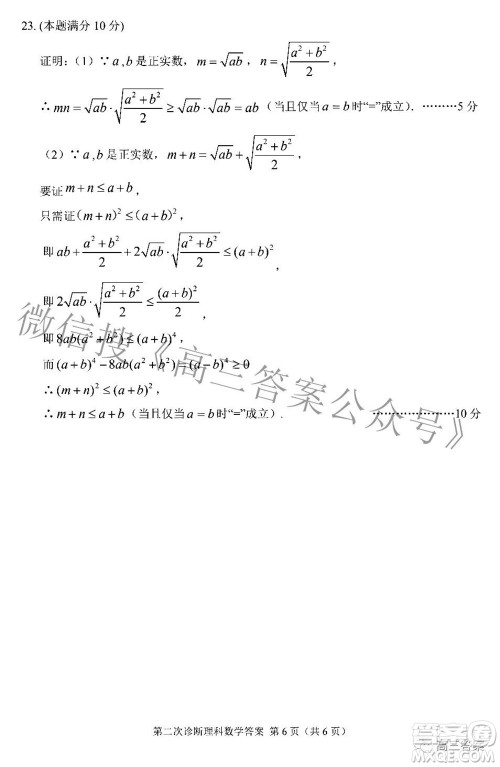 23. (本题满分 10 分)
证明：（1）∵ a , b 是正实数， m = √(ab) ， n = √((a² + b²)/2) ，
∴ mn = √(ab) · √((a² + b²)/2) ≥ √(ab) · √(ab) = ab（当且仅当 a = b 时“=”成立）. ………5 分
（2）∵ a , b 是正实数， m + n = √(ab) + √((a² + b²)/2) ，
要证 m + n ≤ a + b ，
只需证 (m + n)² ≤ (a + b)² ，
即 ab + (a² + b²)/2 + 2√(ab) · √((a² + b²)/2) ≤ (a + b)² ，
即 2√(ab) · √((a² + b²)/2) ≤ (a + b)²/2 ，
即 8ab(a² + b²) ≤ (a + b)⁴ ，
而 (a + b)⁴ − 8ab(a² + b²) = (a − b)⁴ ≥ 0
∴ (m + n)² ≤ (a + b)² ，
∴ m + n ≤ a + b（当且仅当 a = b 时“=”成立）. …………………10 分
微信搜《高三答案公众号》
第二次诊断理科数学答案 第 6 页（共 6 页）
高三答案